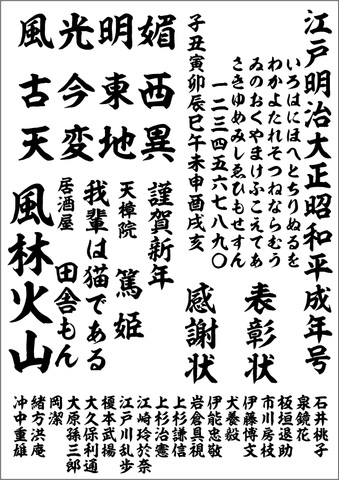 江戸明治大正昭和平成年号
いろはにほへとちりぬるを
わかよたれそつねならむう
ゐのおくやまけふこえてあ
さきゆめみしゑひもせすん
一二三四五六七八九〇
子丑寅卯辰巳午未申酉戌亥
表彰状
感謝状
風光明媚
古今東西
天変地異
謹賀新年
天樟院
篤姫
我輩は猫である
居酒屋
田舎もん
風林火山
石井桃子
泉鏡花
板垣退助
市川房枝
伊藤博文
犬養毅
伊能忠敬
岩倉具視
上杉謙信
上杉治憲
江崎玲於奈
江戸川乱歩
榎本武揚
大久保利通
大原孫三郎
岡潔
緒方洪庵
沖中重雄